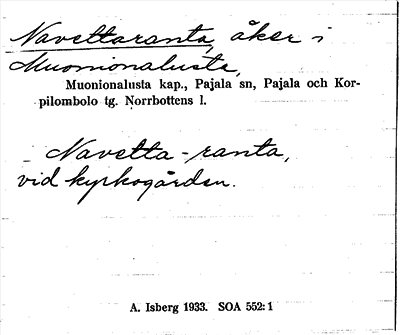 Navettaranta, åker i
Muonionalusta,
Muonionalusta kap., Pajala sn, Pajala och Kor-
pilombolo tg. Norrbottens l.
Navetta-ranta,
vid kyrkogården.
A. Isberg 1933. SOA 552:1